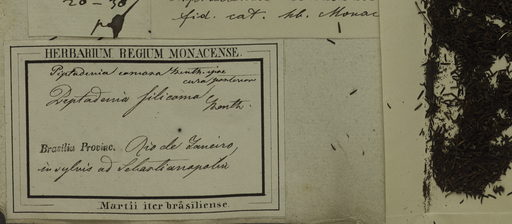 20-30
fid. cat. hb. Monac
HERBARIUM REGIUM MONACENSE.
Piptadenia comosa Benth. ipse
cura posteriore
Piptadenia filicoma Benth.
Brasilia Provinc. Rio de Janeiro,
in sylvis ad Sebastianopolin
Martii iter brasiliense.